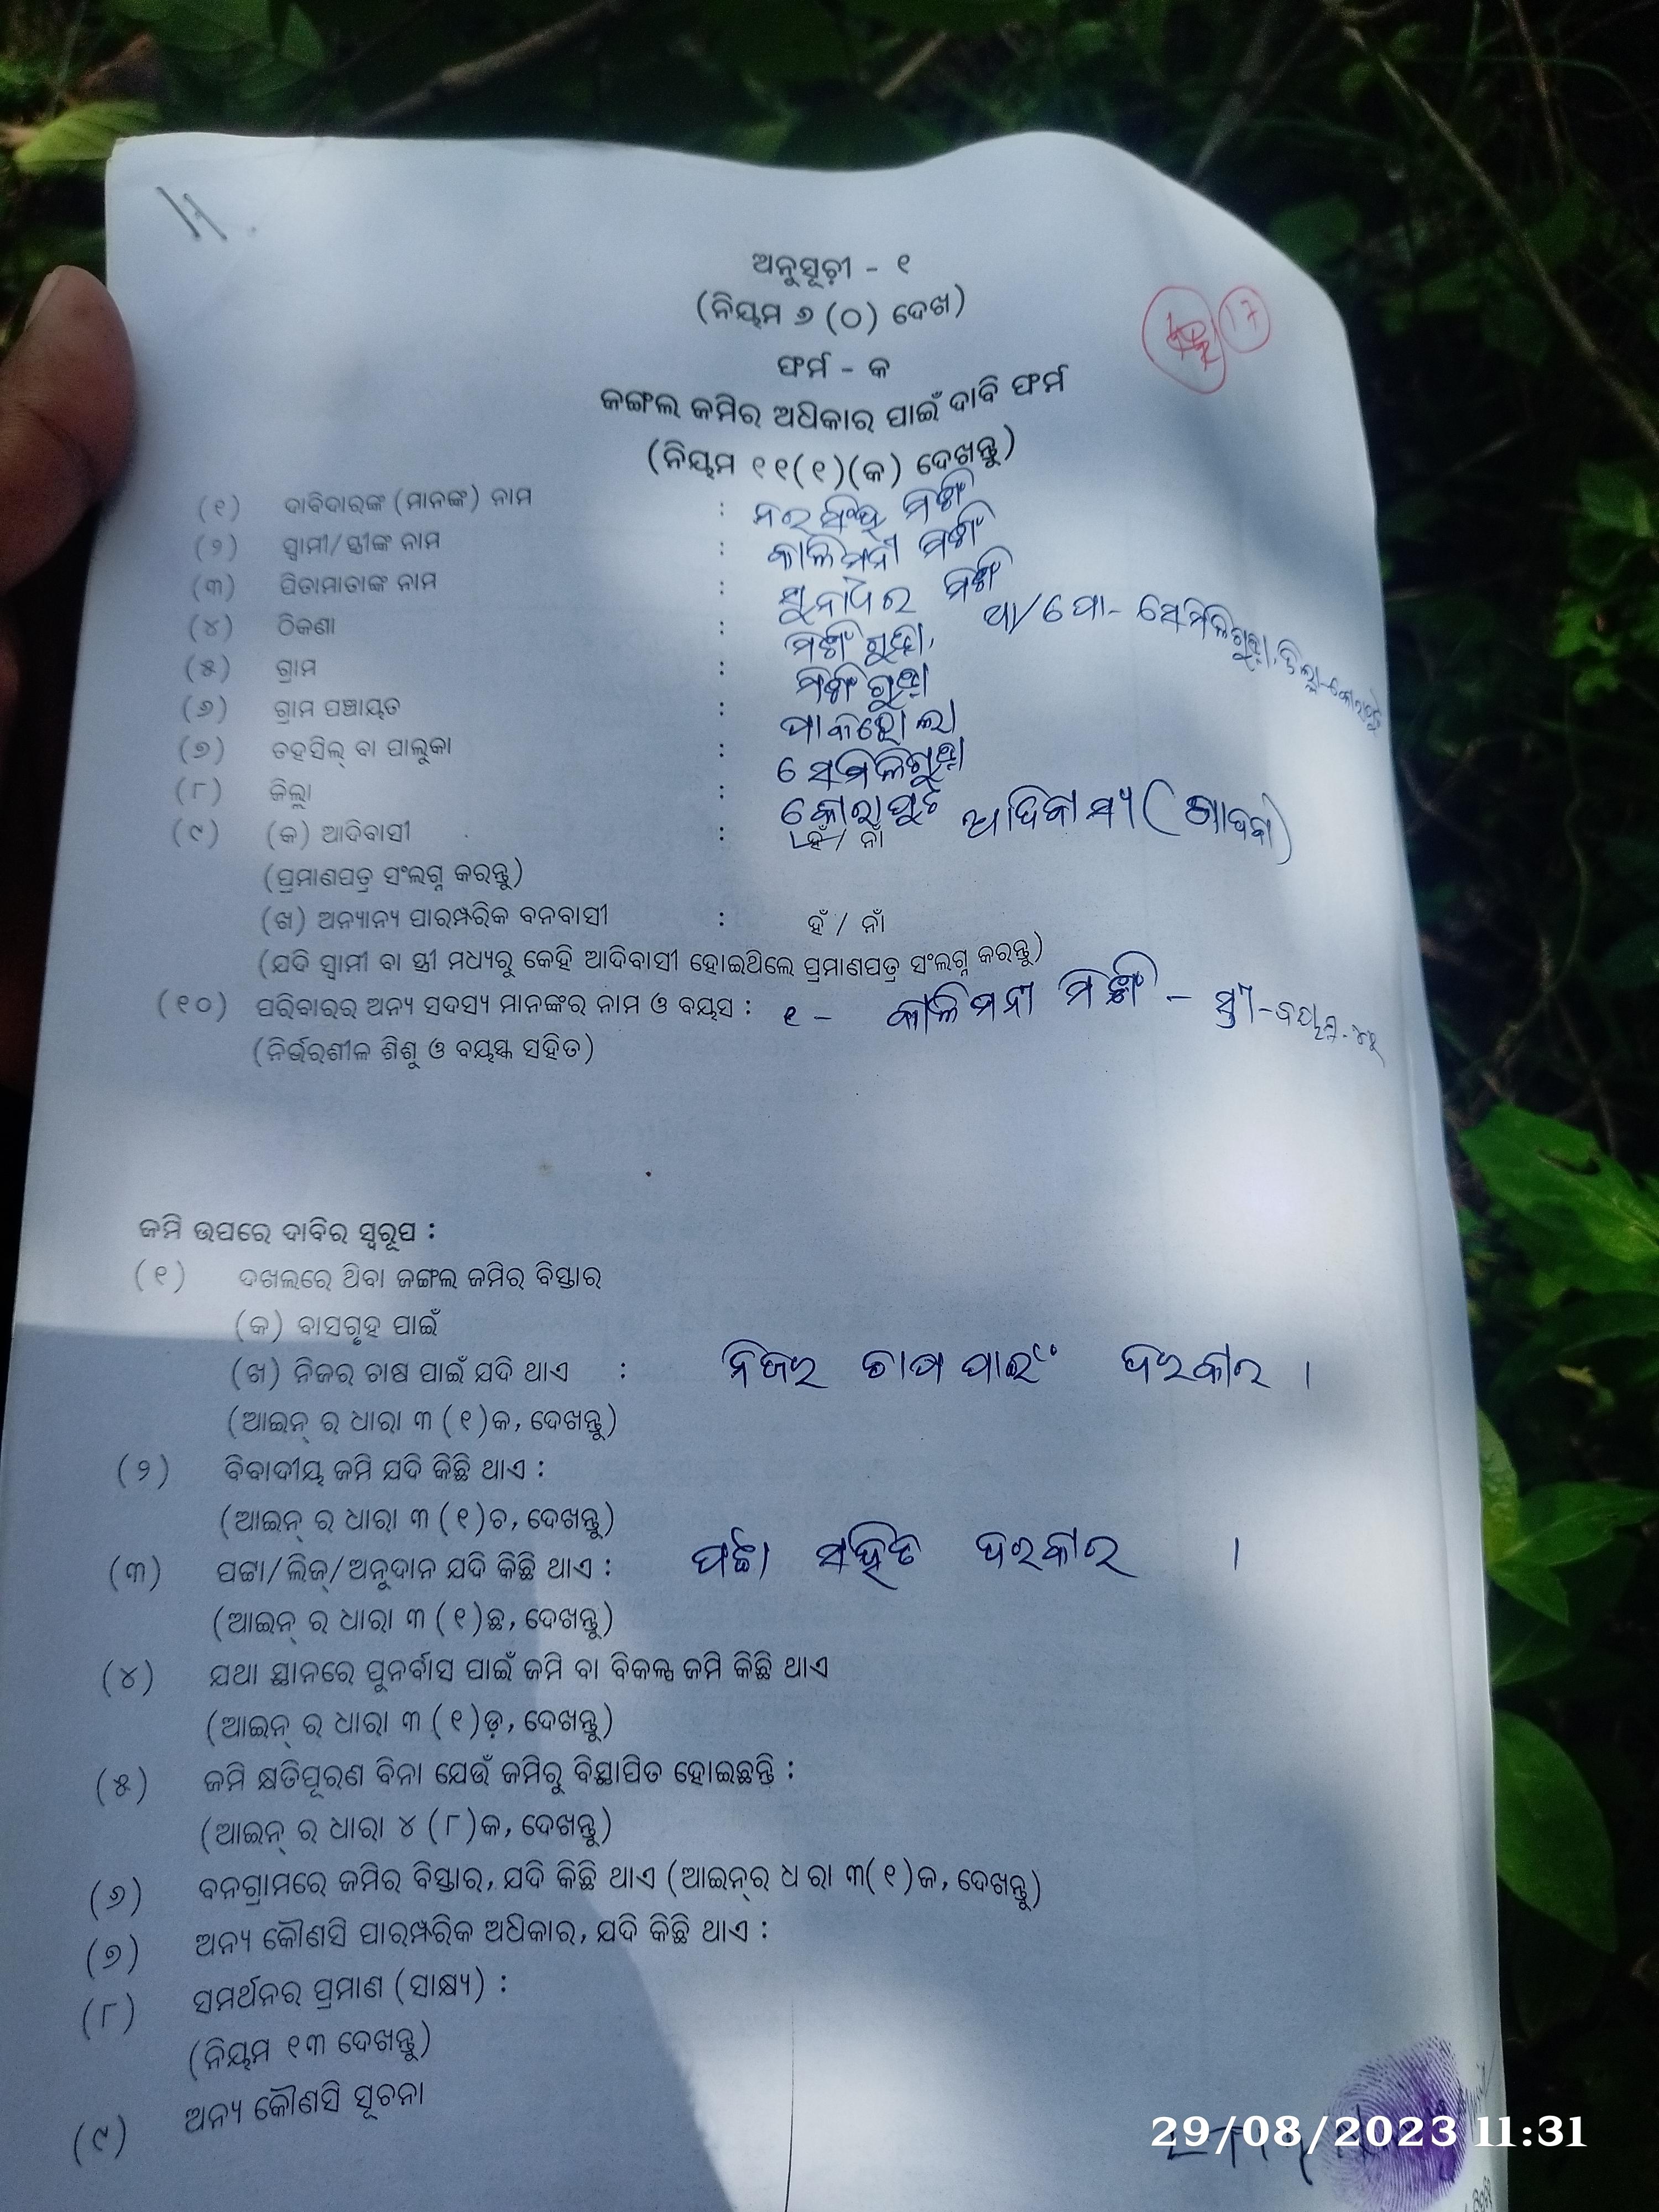 ଅନୁସୂଚୀ - ୧
(ନିୟମ ୬ (୦) ଦେଖ)
17
ଫର୍ମ - କ
ଜଙ୍ଗଲ ଜମିର ଅଧିକାର ପାଇଁ ଦାବି ଫର୍ମ
(ନିୟମ ୧୧(୧)(କ) ଦେଖନ୍ତୁ)
(୧) ଦାବିଦାରଙ୍କ (ମାନଙ୍କ) ନାମ : ନରସିଂହ
(୨) ସ୍ୱାମୀ/ସ୍ତ୍ରୀଙ୍କ ନାମ : କାଳିମନୀ
(୩) ପିତାମାତାଙ୍କ ନାମ : ସୁନାଧର
(୪) ଠିକଣା : ପୋ- ସେମିଳିଗୁଡ଼ା, ଜିଲ୍ଲା-କୋରାପୁଟ
(୫) ଗ୍ରାମ :
(୬) ଗ୍ରାମ ପଞ୍ଚାୟତ :
(୭) ତହସିଲ୍ ବା ପାଲୁକା : ସେମିଳିଗୁଡ଼ା
(୮) ଜିଲ୍ଲା : କୋରାପୁଟ
(୯) (କ) ଆଦିବାସୀ : ହଁ / ନାଁ ଆଦିବାସୀ (ଗାଦବା)
(ପ୍ରମାଣପତ୍ର ସଂଲଗ୍ନ କରନ୍ତୁ)
(ଖ) ଅନ୍ୟାନ୍ୟ ପାରମ୍ପରିକ ବନବାସୀ : ହଁ / ନାଁ
(ଯଦି ସ୍ୱାମୀ ବା ସ୍ତ୍ରୀ ମଧ୍ୟରୁ କେହି ଆଦିବାସୀ ହୋଇଥିଲେ ପ୍ରମାଣପତ୍ର ସଂଲଗ୍ନ କରନ୍ତୁ)
(୧୦) ପରିବାରର ଅନ୍ୟ ସଦସ୍ୟ ମାନଙ୍କର ନାମ ଓ ବୟସ : ୧ - କାଳିମନୀ - ସ୍ତ୍ରୀ-ବୟସ
(ନିର୍ଭରଶୀଳ ଶିଶୁ ଓ ବୟସ୍କ ସହିତ)
ଜମି ଉପରେ ଦାବିର ସ୍ୱରୂପ :
(୧) ଦଖଲରେ ଥିବା ଜଙ୍ଗଲ ଜମିର ବିସ୍ତାର
(କ) ବାସଗୃହ ପାଇଁ
(ଖ) ନିଜର ଚାଷ ପାଇଁ ଯଦି ଥାଏ : ନିଜର ଚାଷ ପାଇଁ ଦରକାର ।
(ଆଇନ୍ ର ଧାରା ୩ (୧)କ, ଦେଖନ୍ତୁ)
(୨) ବିବାଦୀୟ ଜମି ଯଦି କିଛି ଥାଏ :
(ଆଇନ୍ ର ଧାରା ୩ (୧)ଚ, ଦେଖନ୍ତୁ)
(୩) ପଟ୍ଟା/ଲିଜ୍/ଅନୁଦାନ ଯଦି କିଛି ଥାଏ : ପଟ୍ଟା ସହିତ ଦରକାର ।
(ଆଇନ୍ ର ଧାରା ୩ (୧)ଛ, ଦେଖନ୍ତୁ)
(୪) ଯଥା ସ୍ଥାନରେ ପୁନର୍ବାସ ପାଇଁ ଜମି ବା ବିକଳ୍ପ ଜମି କିଛି ଥାଏ
(ଆଇନ୍ ର ଧାରା ୩ (୧)ଡ଼, ଦେଖନ୍ତୁ)
(୫) ଜମି କ୍ଷତିପୂରଣ ବିନା ଯେଉଁ ଜମିରୁ ବିସ୍ଥାପିତ ହୋଇଛନ୍ତି :
(ଆଇନ୍ ର ଧାରା ୪ (୮)କ, ଦେଖନ୍ତୁ)
(୬) ବନଗ୍ରାମରେ ଜମିର ବିସ୍ତାର, ଯଦି କିଛି ଥାଏ (ଆଇନ୍‌ର ଧ ରା ୩(୧)ଜ, ଦେଖନ୍ତୁ)
(୭) ଅନ୍ୟ କୌଣସି ପାରମ୍ପରିକ ଅଧିକାର, ଯଦି କିଛି ଥାଏ :
(୮) ସମର୍ଥନର ପ୍ରମାଣ (ସାକ୍ଷ୍ୟ) :
(ନିୟମ ୧୩ ଦେଖନ୍ତୁ)
(୯) ଅନ୍ୟ କୌଣସି ସୂଚନା
29/08/2023 11:31